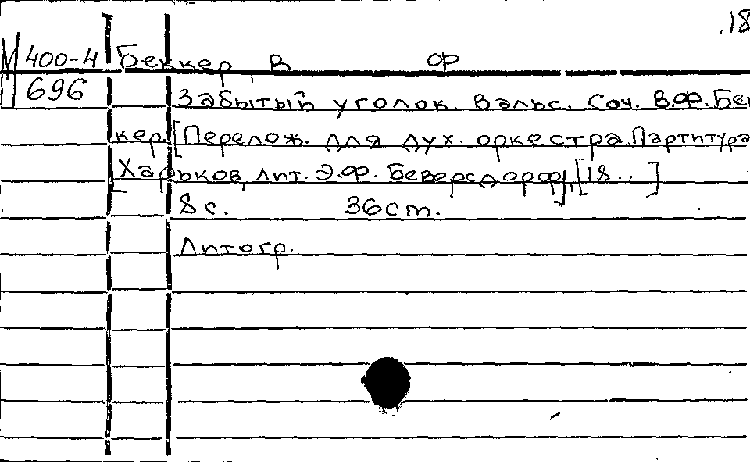 .18
М 400-4 Беккер, В Ф
696
Забытый уголок. Вальс. Соч. В.Ф. Бек
кер. [Перелож. для дух. оркестра. Партитура
[Харьков, лит. Э.Ф. Беверсдорф], [18..]
8 с. 36 см.
Литогр.